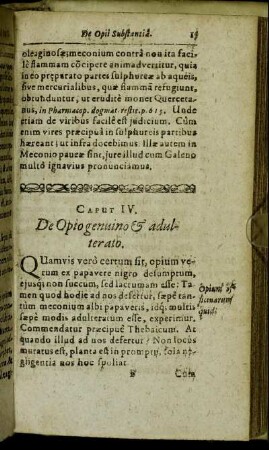 De Opii Substantiâ. 19
oleaginosæ; meconium contrà non ita faci-
lè flammam cõcipere animadvertitur, quia
in eo præparato partes sulphureæ ab aqueis,
sive mercurialibus, quæ flammã refugiunt,
obtunduntur, ut eruditè monet Querceta-
nus, in Pharmacop. dogmat. resti. p. 615. Unde
etiam de viribus facilè est judicium. Cùm
enim vires præcipuæ in sulphureis partibus
hæreant; ut infra docebimus. Illæ autem in
Meconio paucæ sint, jure illud cum Galeno
multò ignavius pronunciamus.
CAPUT IV.
De Opio genuino & adul-
terato.
QUamvis verò certum sit, opium ve-
rum ex papavere nigro desumptum,
ejusq́; non succum, sed lacrumam esse: Ta-
men quod hodie ad nos defertur, sæpè ran-
tùm meconium albi papaveris, idq́; multis
sæpè modis adulteratum esse, experimur.
Commendatur præcipuè Thebaicum. At
quando illud ad nos defertur? Non locus
mutatus est, planta est in promptu, sola ne-
gligentia nos hoc spoliat.
Opium of-
ficinarum
quid?
B Cùm